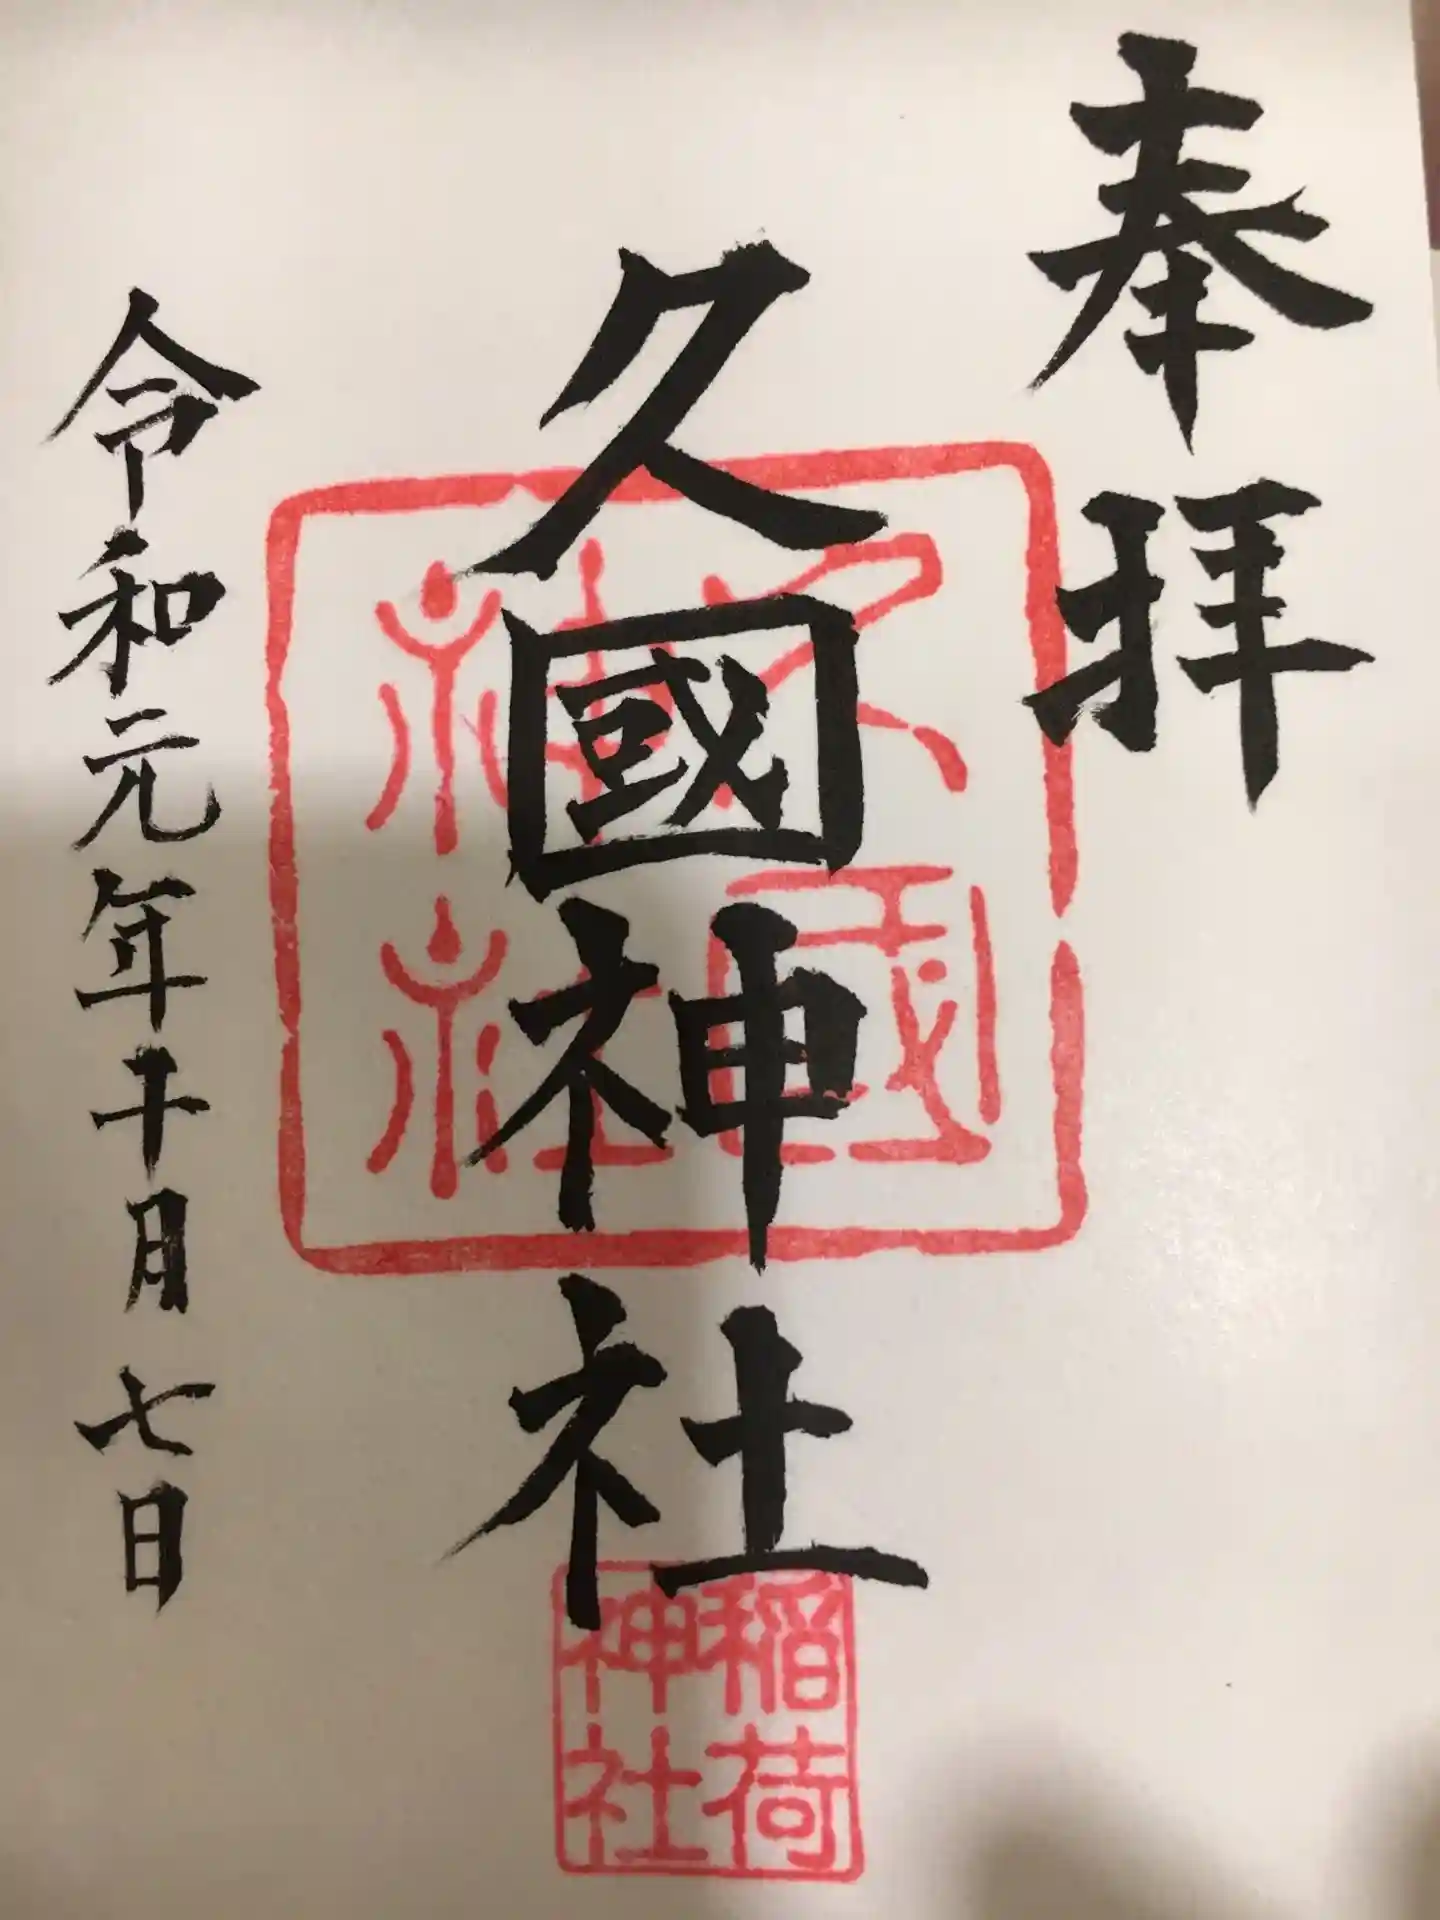 奉拝
久國神社
久國
神社
稲荷
神社
令和元年十月七日